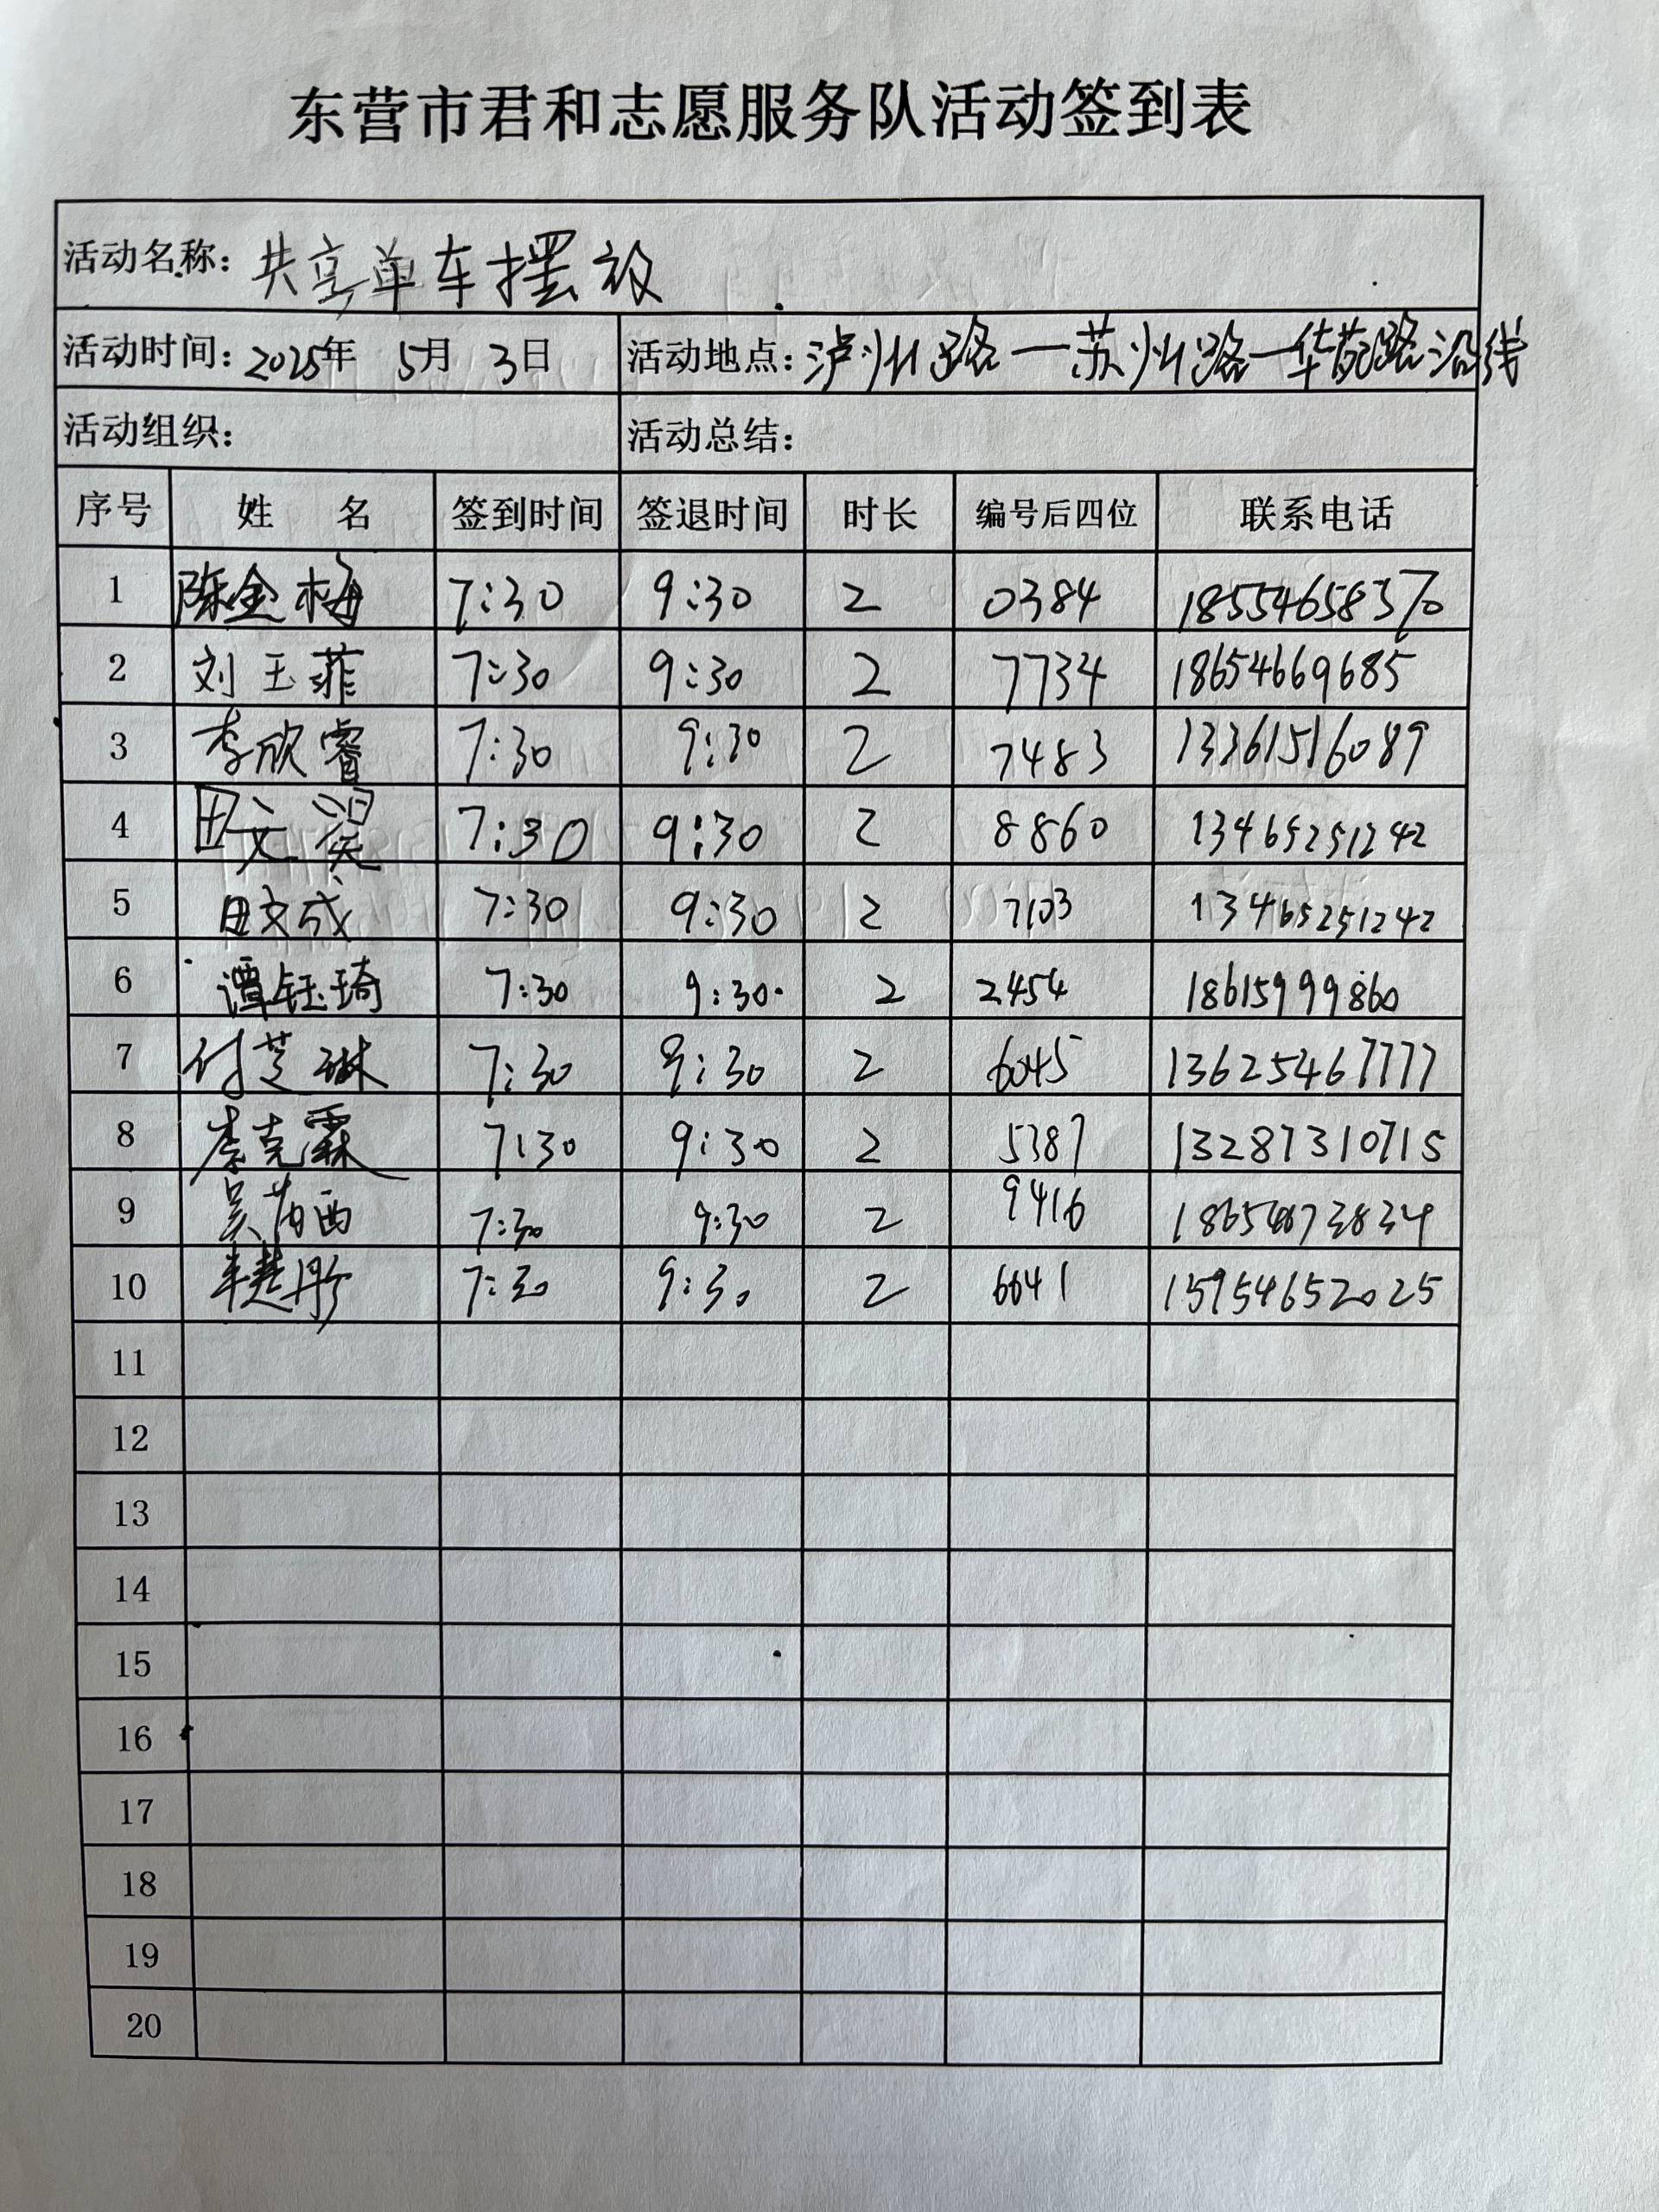 东营市君和志愿服务队活动签到表
活动名称：共享单车摆放
活动时间：2025年 5月 3日 活动地点：泸州路一苏州路一华苑路沿线
活动组织： 活动总结：
序号 姓 名 签到时间 签退时间 时长 编号后四位 联系电话
1 陈金梅 7:30 9:30 2 0384 18554658370
2 刘玉菲 7:30 9:30 2 7734 18654669685
3 李欣睿 7:30 9:30 2 7483 13361516089
4 田文 7:30 9:30 2 8860 13465251242
5 田文成 7:30 9:30 2 7103 13465251242
6 谭钰琦 7:30 9:30 2 2454 18615999860
7 付芝琳 7:30 9:30 2 6045 13625467777
8 李克霖 7:30 9:30 2 5387 13287310715
9 吴西 7:30 9:30 2 9416
10 7:30 9:30 2 6641 15954652025
11
12
13
14
15
16
17
18
19
20